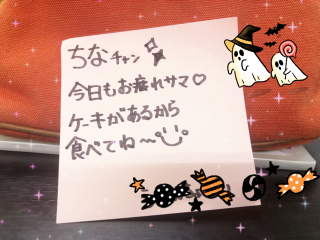 ちなチャン
今日もお疲れサマ♡
ケーキがあるから
食べてね〜